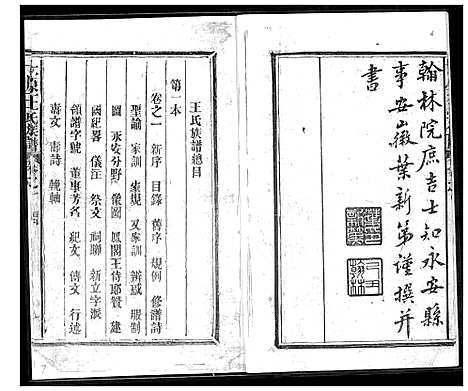 翰林院庶吉士知永安縣
事安徽葉新第謹撰并
書
王氏族譜總目
第一本
卷之一 新序 目錄 舊序 規例 修譜詩
聖諭 家訓 宗規 又家訓 辨惑 服制
圖 永安分野 像圖 鳳閣王侍郎贊 建
國紀畧 儀注 祭文 祠聯 新立字派
領譜字號 董事芳名 紀文 傳文 行述
壽文 壽詩 輓軸
王氏族譜